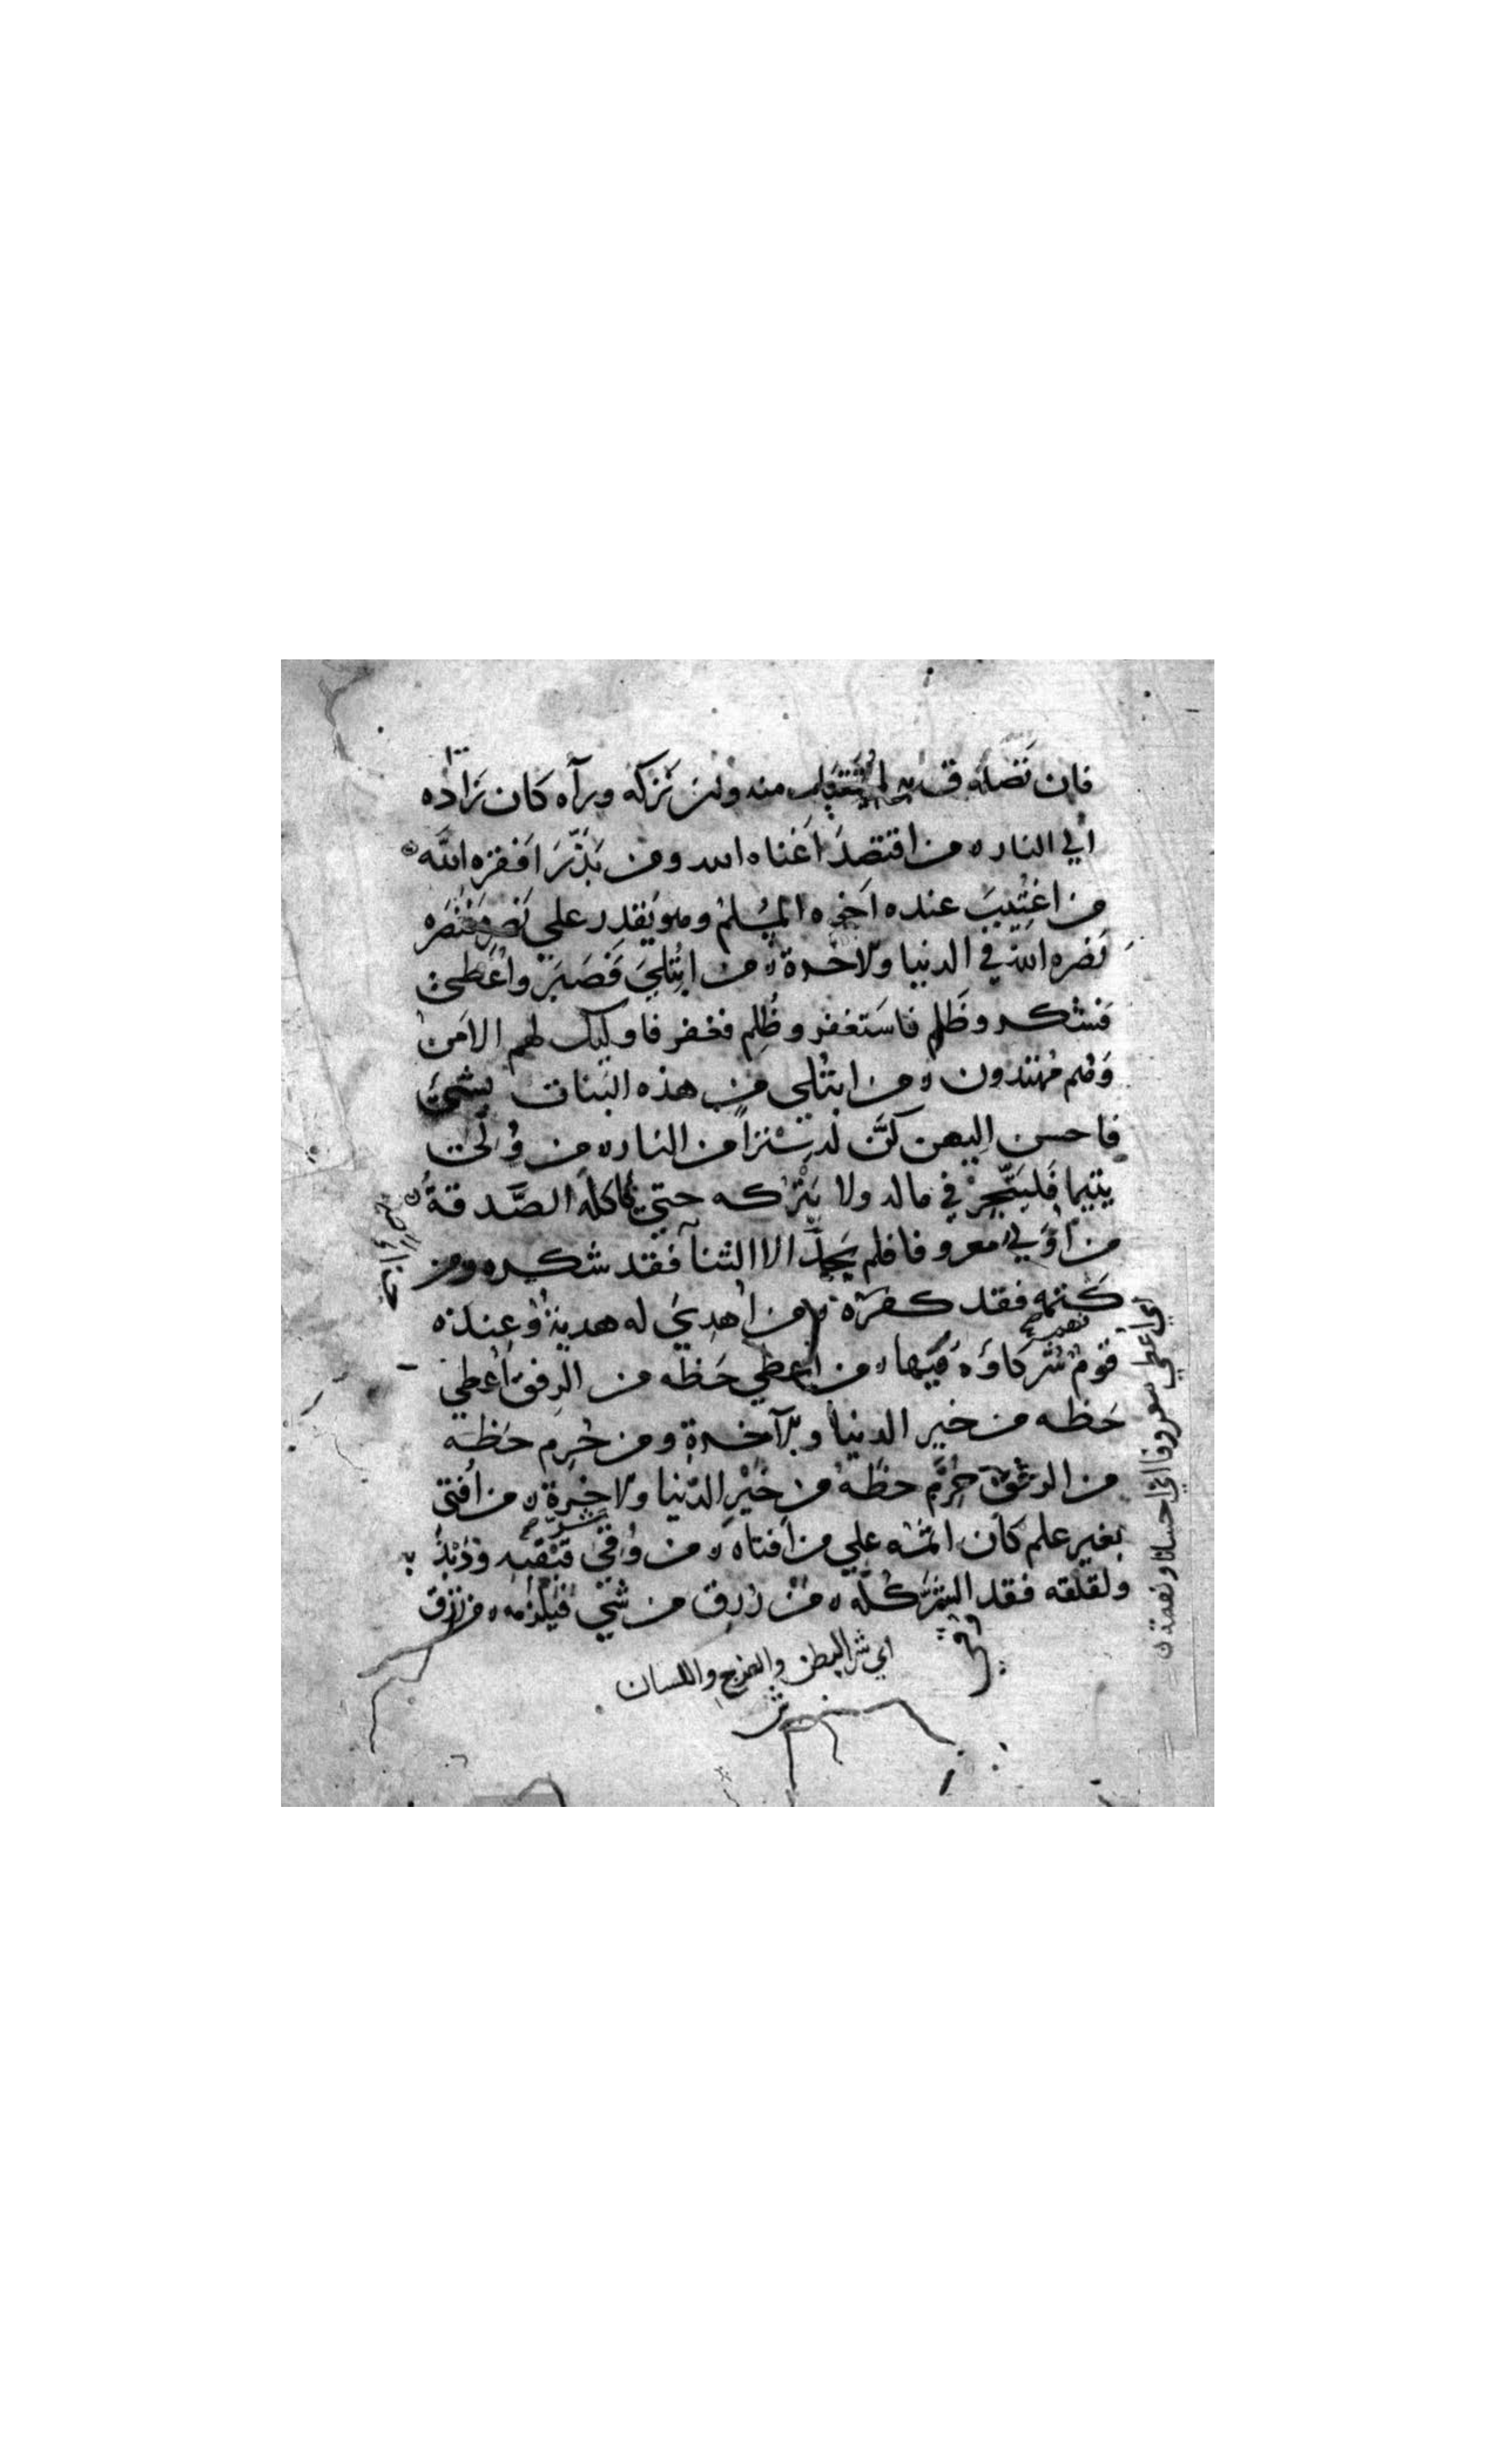 فان تصدق به لم يتقبل منه وان تركه وراه كان زاده
الي النار ٥ من اقتصد اغناه الله ومن بذّر افقره الله ٥
من اغتيب عنده اخوه المسلم وهو يقدر علي نصره فنصره
نصره الله في الدنيا والاخرة ٥ من ابتُلي فَصبَر واُعطي
فشكر وظَلم فاستغفر وظُلِم فغفر فاوليك لهم الامن
وهم مهتدون ٥ من ابتلي من هذه البنات بشيئ
فاحسن اليهن كنّ له ستراً من النار ٥ من وُلي
يتيما فليتّجر في ماله ولا يتركه حتي تاكله الصّدقة ٥
من اُولي معروفا فلم يجد الا الثنآ فقد شكره ومن
كتمه فقد كفره ٥ من اُهدي له هدية وعنده
قوم شركاوه فيها ٥ من اُعطي حَظه من الرفق اُعطي
حَظه من خير الدنيا والآخرة ومن حُرِم حظه
من الرفق حُرِم حظه من خَيْر الدّنيا والاخِرة ٥ من اُفتي
بغير علم كان اثمه علي من افتاه ٥ من وُقي قبقبه وذبذبه
ولقلقه فقد الشرّ كلّه ٥ من رُزِق من شيئ فليلزمه ٥ من رزق
اي شر البطن والفرج واللسان
اي اعطي معروفا اي احسانا ونعمة ٥